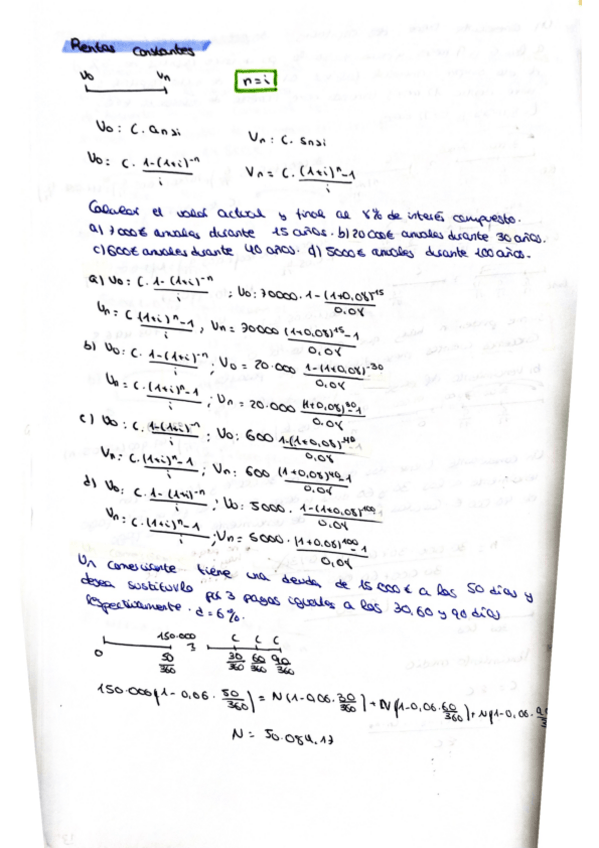 Rentas constantes
V0 Vn n=i
V0: C. an¬i Vn: C. sn¬i
V0: C. 1-(1+i)^-n / i Vn= C. (1+i)^n-1 / i
Calcular el valor actual y final al 8% de interés compuesto.
a) 7000€ anuales durante 15 años. b) 20000€ anuales durante 30 años.
c) 600€ anuales durante 40 años. d) 5000€ anuales durante 100 años.
a) V0: C. 1-(1+i)^-n / i ; V0: 70000. 1-(1+0,08)^15 / 0,08
Vn= C (1+i)^n-1 / i ; Vn= 70000 (1+0,08)^15-1 / 0,08
b) V0: C. 1-(1+i)^-n / i ; V0= 20.000 1-(1+0,08)^-30 / 0,08
Vn= C.(1+i)^n-1 / i ; Vn= 20.000 (1+0,08)^30-1 / 0,08
c) V0: C. 1-(1+i)^-n / i ; V0: 600 1-(1+0,08)^-40 / 0,08
Vn: C.(1+i)^n-1 / i ; Vn: 600 (1+0,08)^40-1 / 0,08
d) V0: C. 1-(1+i)^-n / i ; V0: 5000. 1-(1+0,08)^100 / 0,08
Vn: C.(1+i)^n-1 / i ; Vn= 5000. (1+0,08)^100-1 / 0,08
Un comerciante tiene una deuda de 15000€ a los 50 días y
desea sustituirlo por 3 pagos iguales a los 30, 60 y 90 días
respectivamente. d=6%.
150.000 C C C
0 50/360 3 30/360 60/360 90/360
150.000(1-0,06. 50/360) = N(1-0,06. 30/360) + N(1-0,06. 60/360) + N(1-0,06.
N= 50.084,17